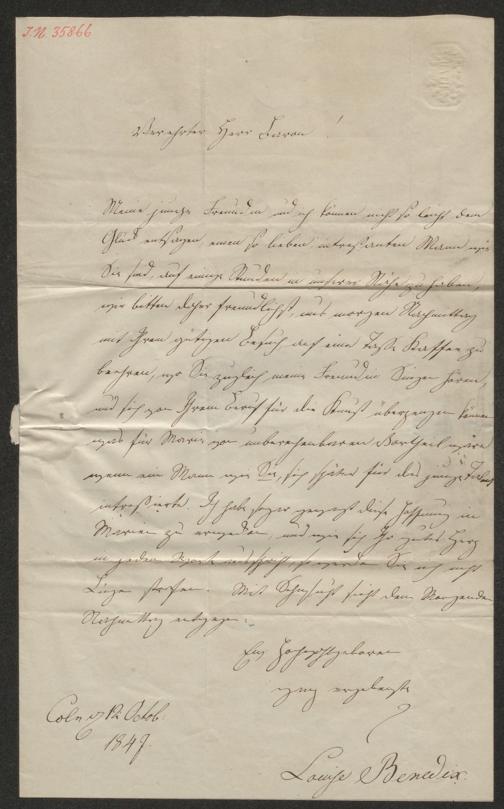 I.N. 35866
Verehrter Herr Baron!
Meine junge Freundin und ich können nicht so leicht dem
Glück entsagen, einen so lieben, intreßanten Mann wie
Sie sind, auf einige Stunden in unserer Nähe zu haben,
wir bitten daher freundlichst, uns morgen Nachmittag
mit Ihrem gütigen Besuch auf eine Taße Kaffee zu
beehren, wo Sie zugleich meine Freundin Singen hören,
und sich von Ihrem Beruf für die Kunst überzeugen können
was für Marie von unberechenbarem Vortheil wäre
wenn ein Mann wie Sie, sich später für das junge Talent
intreßierte. Ich habe sogar gewagt diese Hoffnung in
Marien zu erwecken, und wie sich Ihr gutes Herz
in jedem Worte ausspricht, so werden Sie mich nicht
Lügen strafen. Mit Sehnsucht sieht dem Morgenden
Nachmittag entgegen.
Euer Hochwohlgeboren
ganz ergebenste
Louise Benedix.
Coln 12 Octob.
1847.